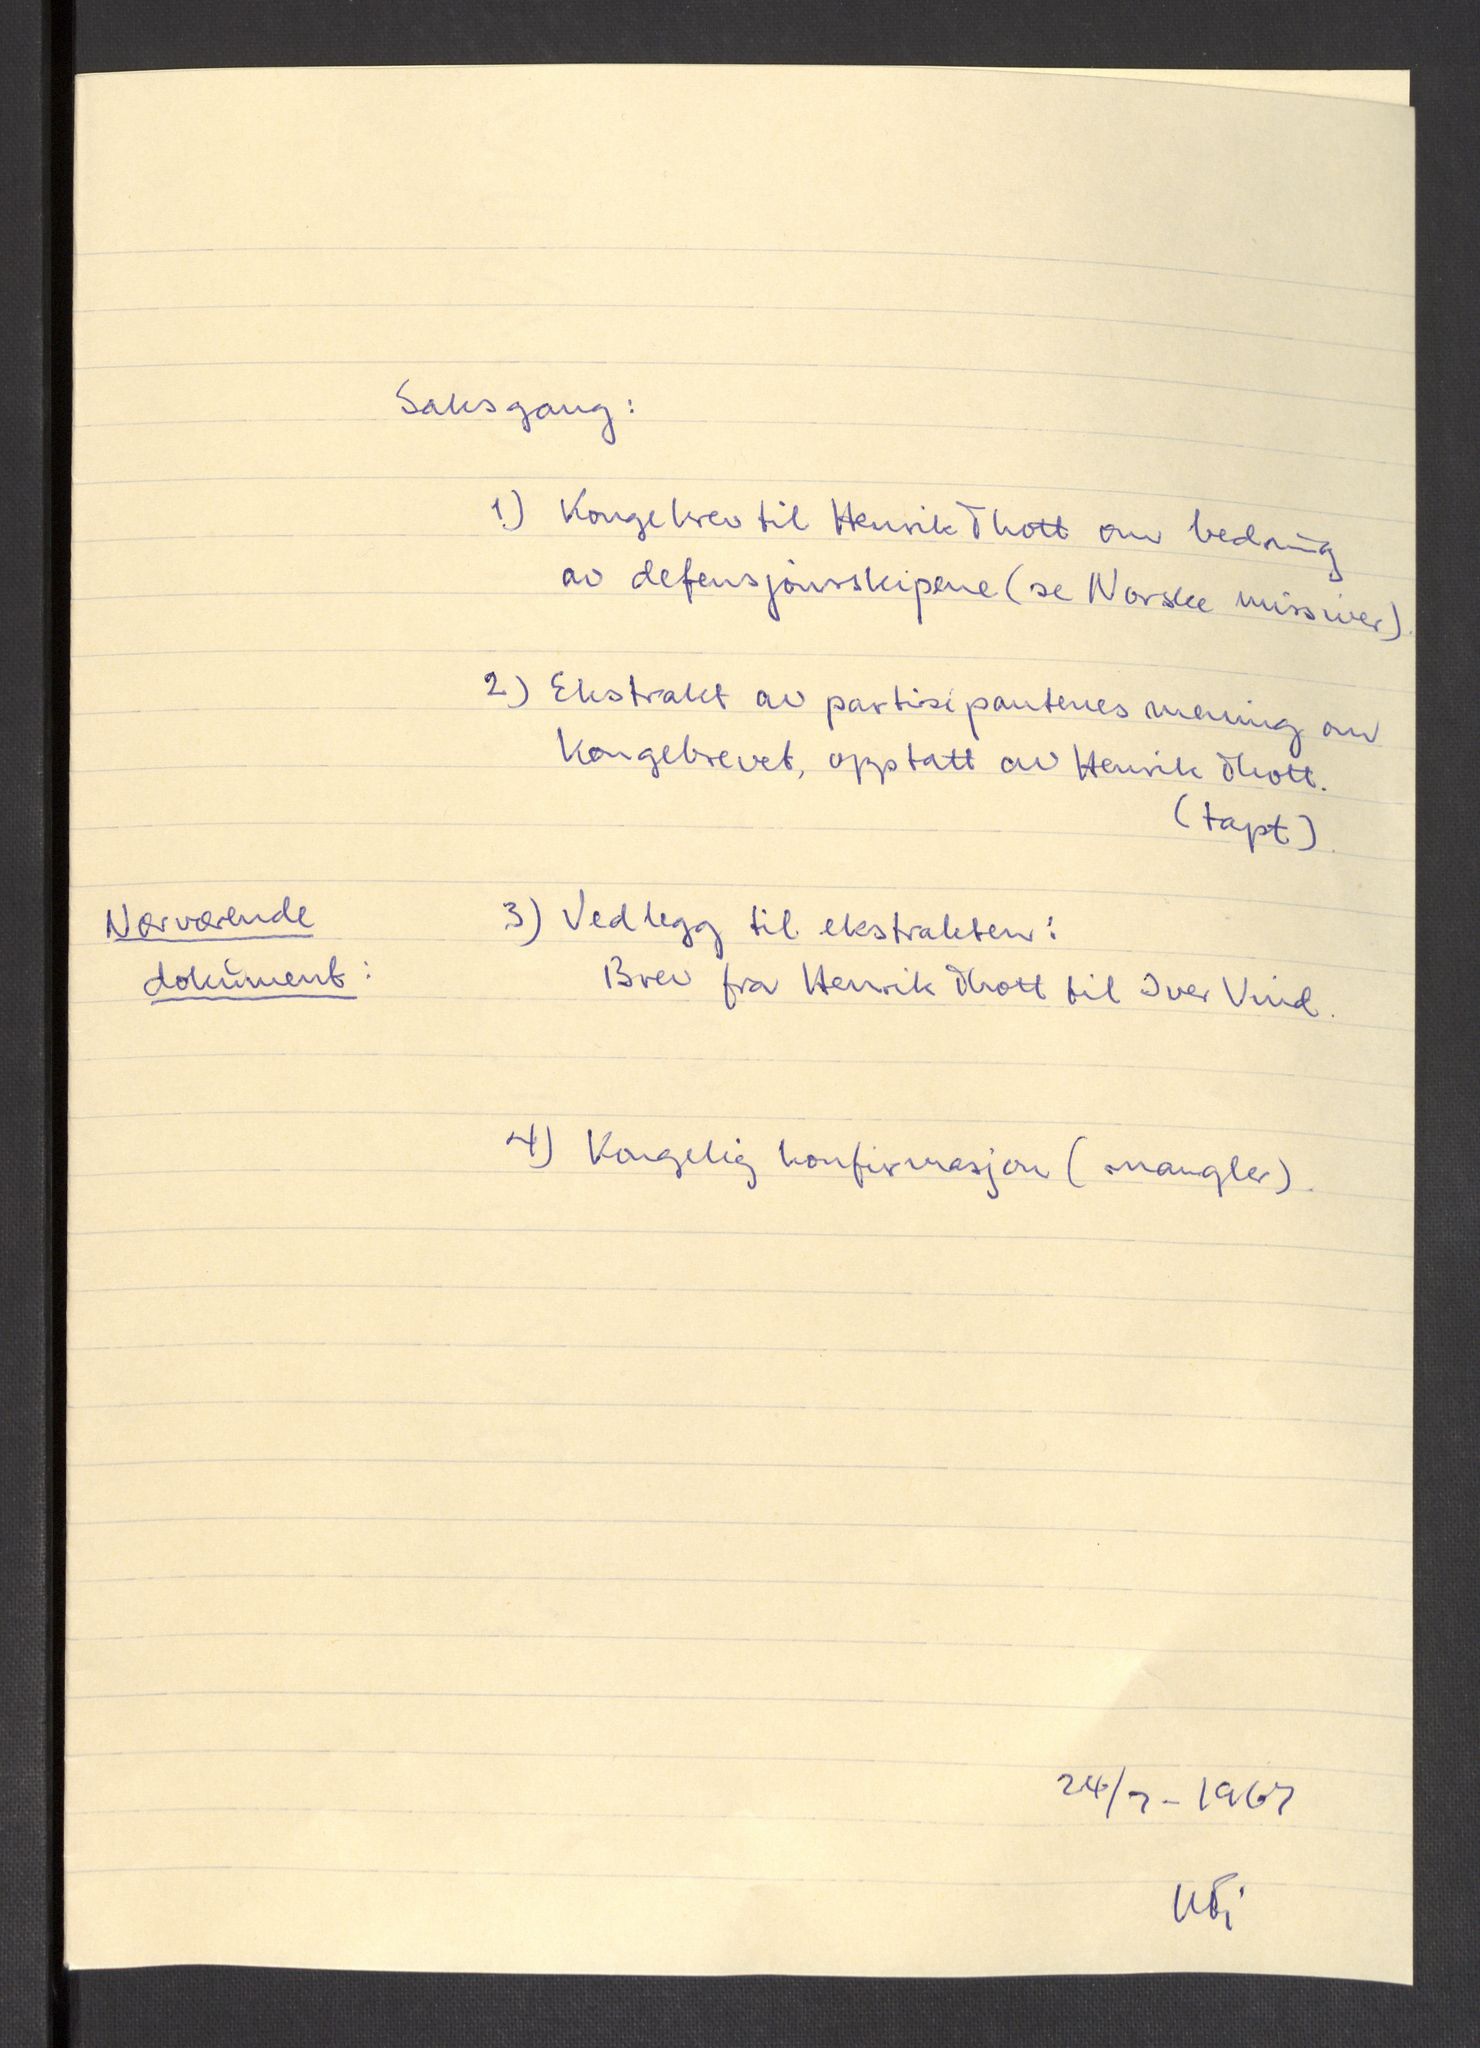 Saksgang:
1) Kongebrev til Henrik Thott om bedring
av defensjonsskipene (se Norske missiver).
2) Ekstrakt av partisipantenes mening om
Kongebrevet, opptatt av Henrik Thott.
(tapt).
Nærværende
dokument:
3) Vedlegg til ekstrakten:
Brev fra Henrik Thott til Iver Vind.
4) Kongelig konfirmasjon (mangler).
24/7-1967